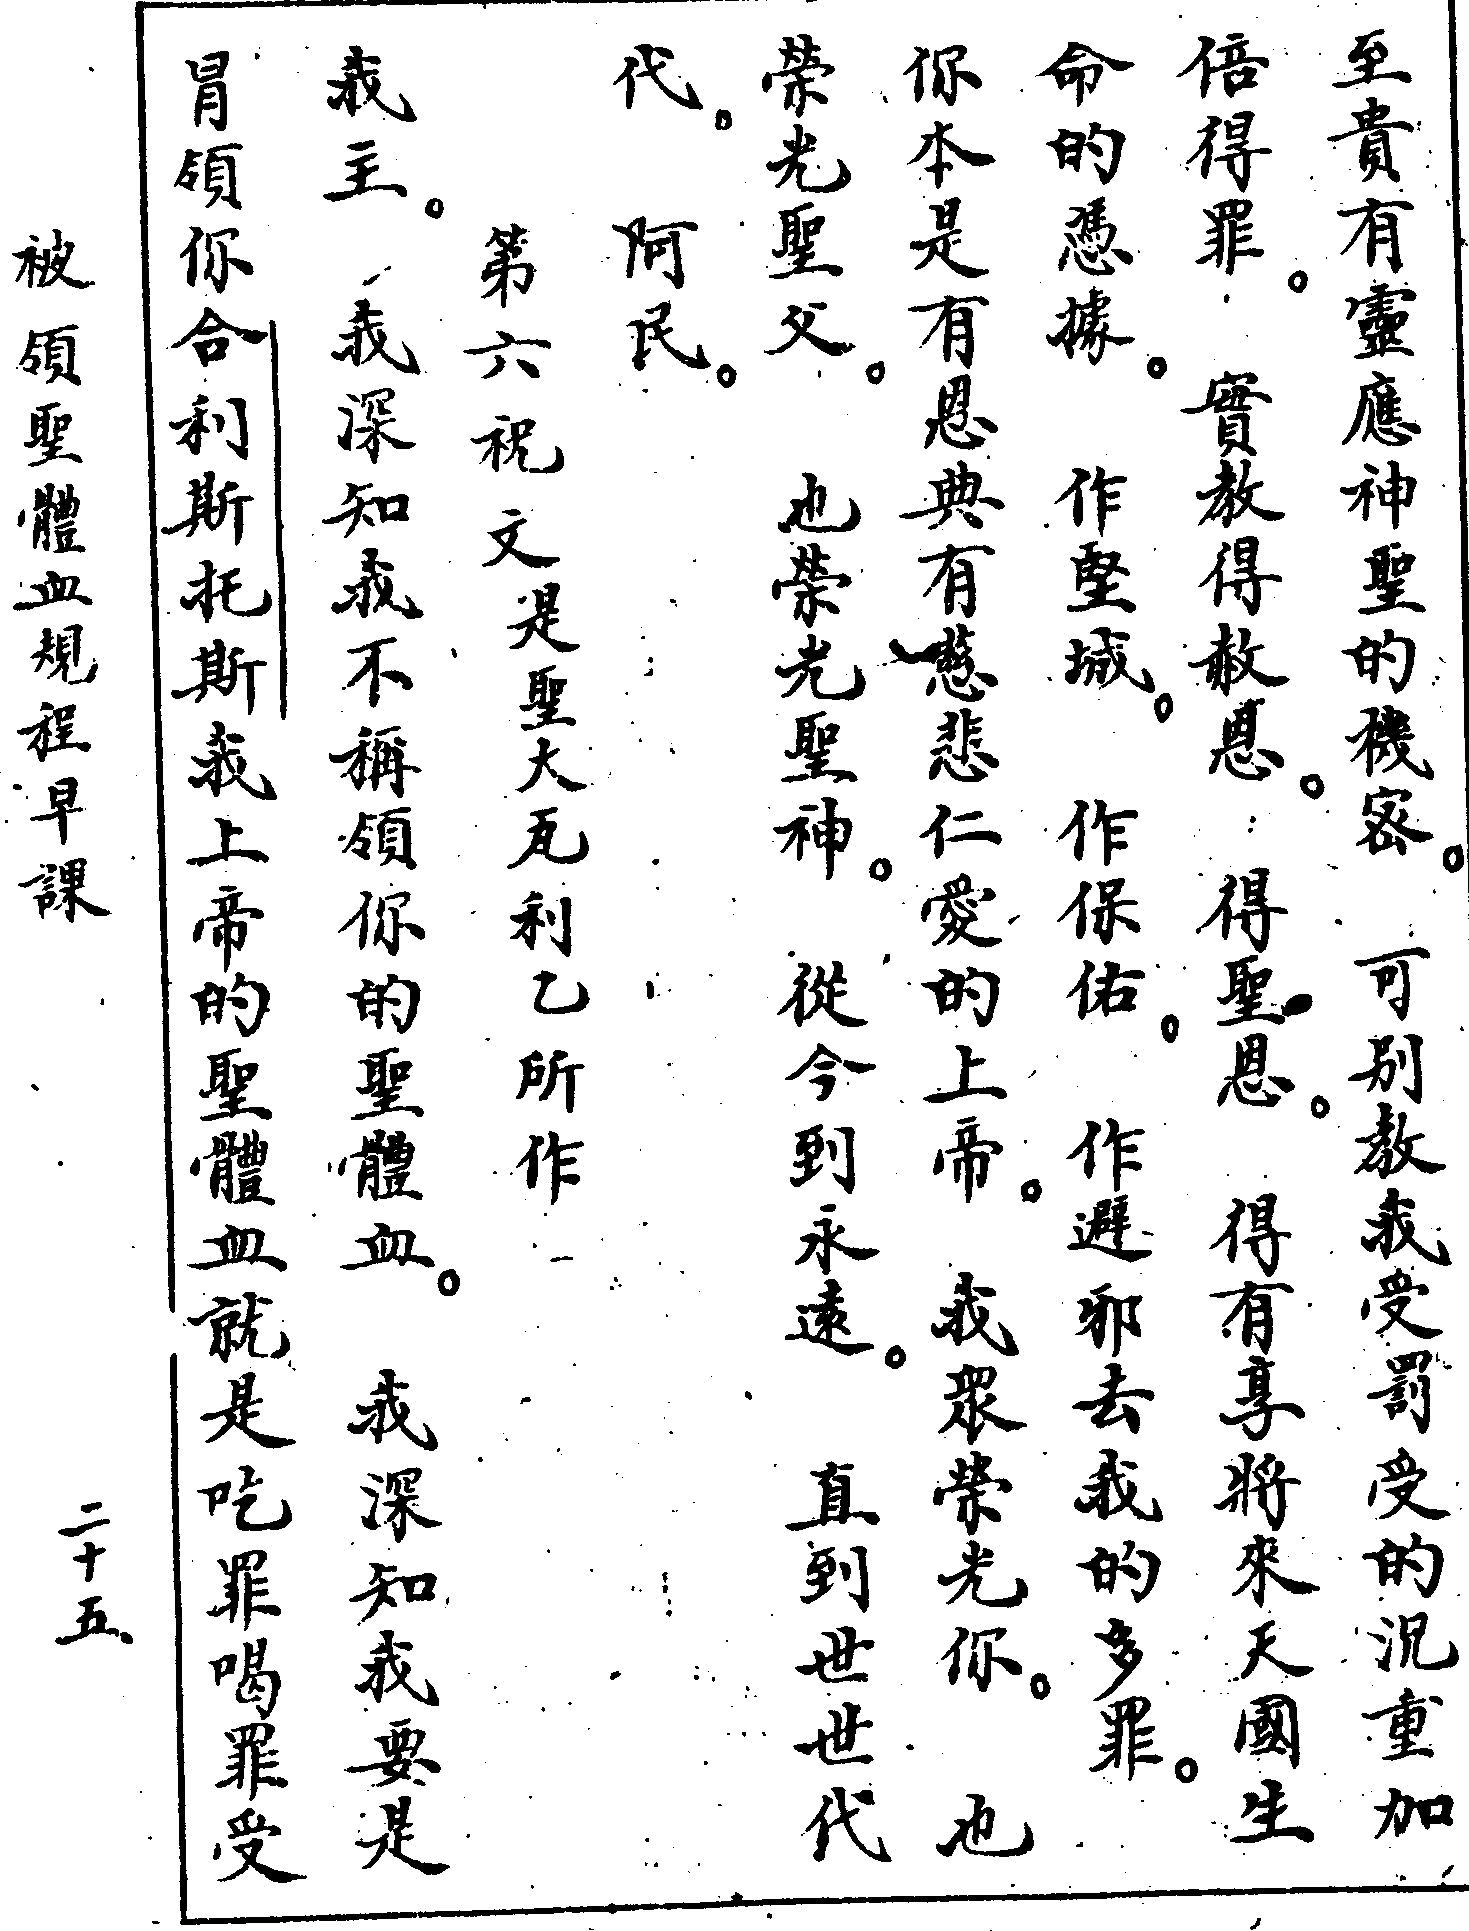 至貴有靈應神聖的機密。可別教我受罰受的沉重加
倍得罪。實教得赦恩。得聖恩。得有享將來天國生
命的憑據。作堅城。作保佑。作避邪去我的多罪。
你本是有恩典有慈悲仁愛的上帝。我眾榮光你。也
榮光聖父。也榮光聖神。從今到永遠。直到世世代
代。阿民。
第六祝文是聖大瓦利乙所作
我主。我深知我不稱領你的聖體血。我深知我要是
冒領你合利斯托斯我上帝的聖體血就是吃罪喝罪受
被領聖體血規程早課
二十五